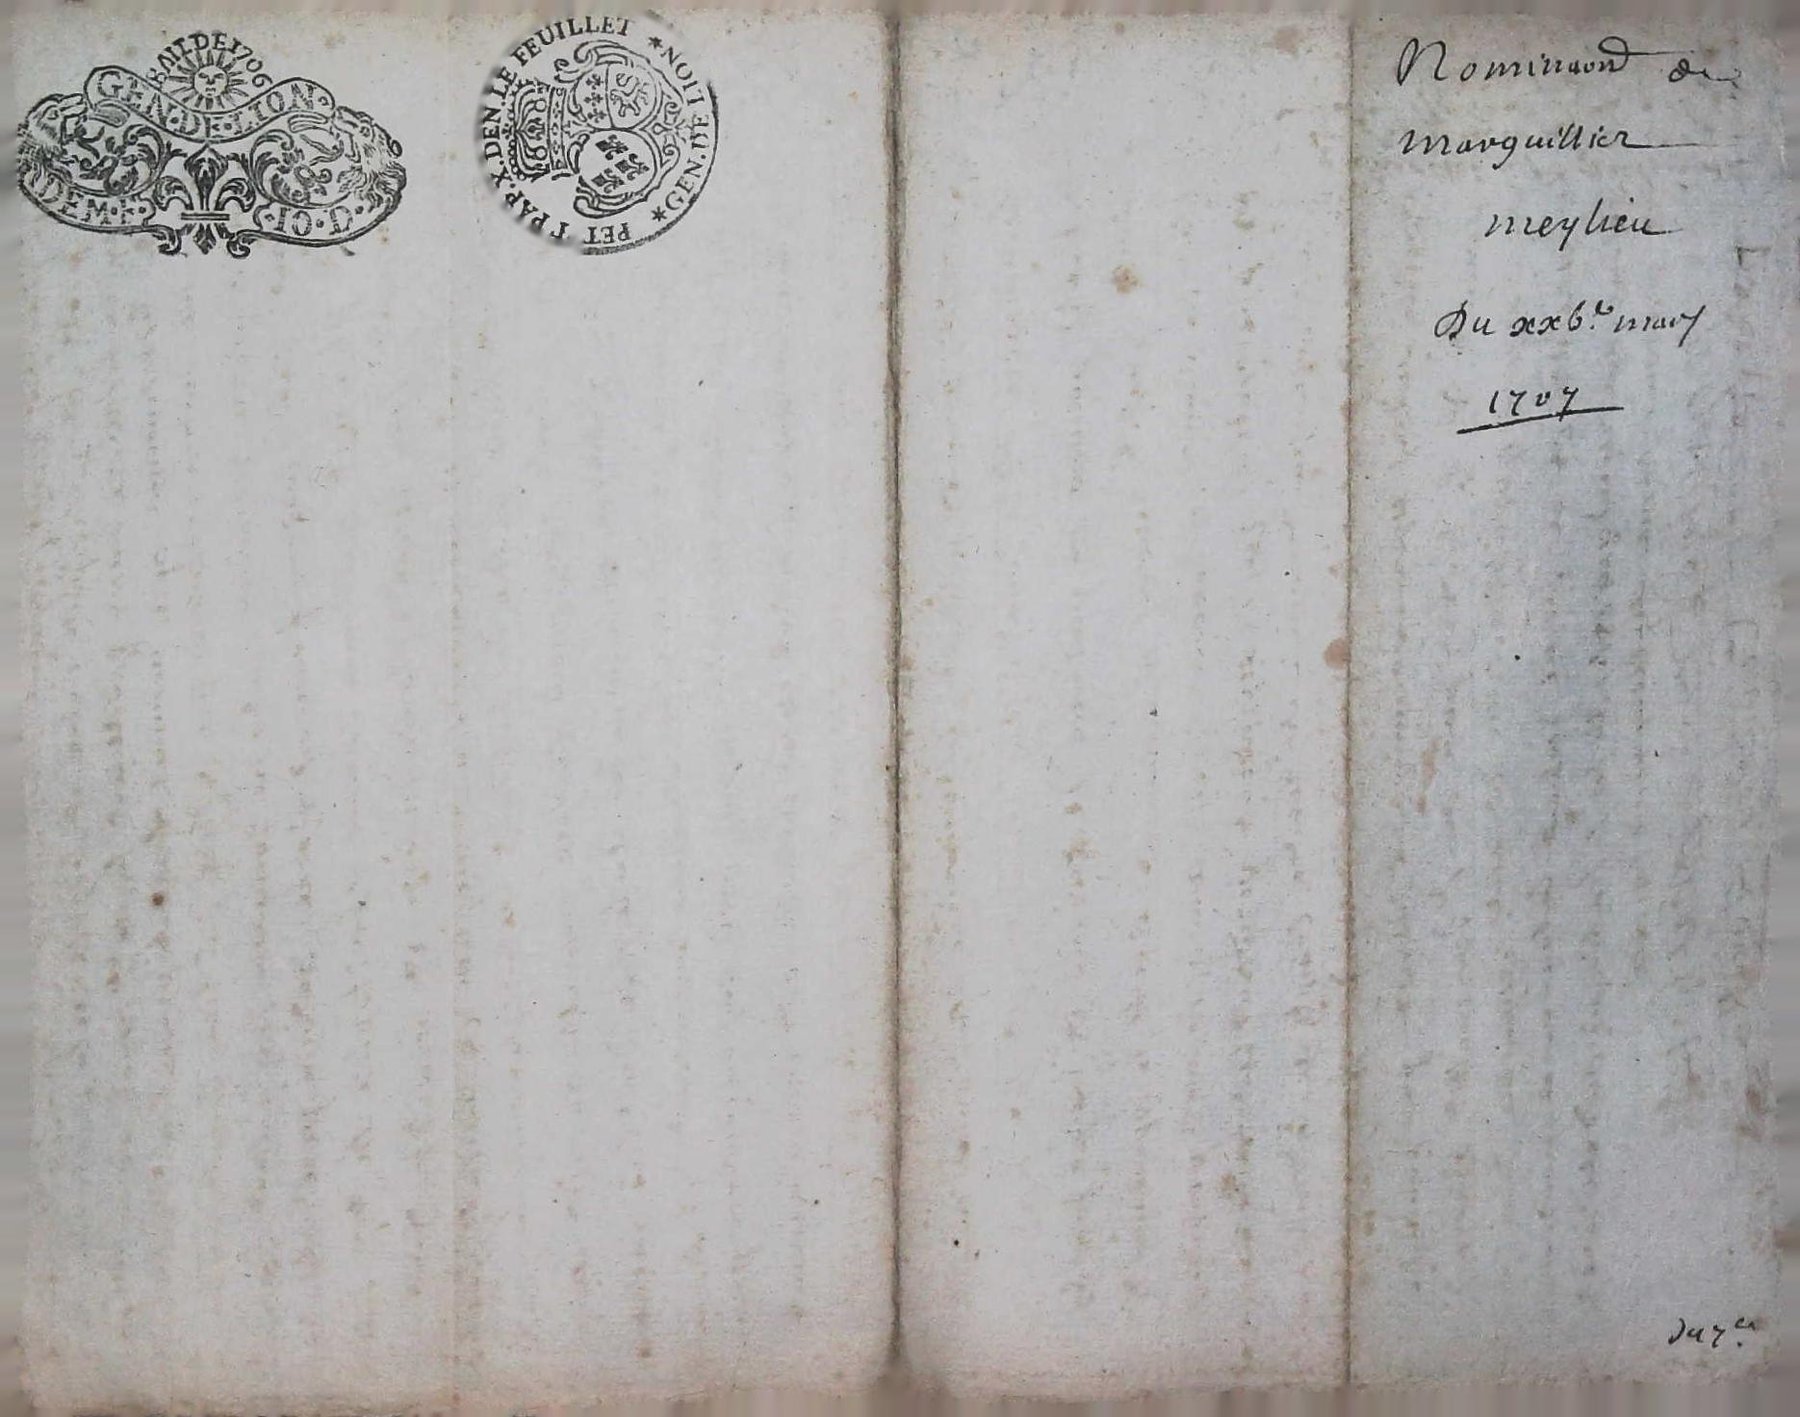 BAIL DE 1706
GEN·DE·LION·
DEM·F·
·IO·D·
PET T PAP.X.DEN.LE FEUILLET
*GEN.DE LION*
Nominaon de
marguillier
meylieu
Du xxbe. mars
1707